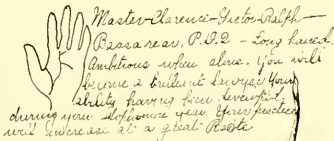 Master Clarence Victor Ralph
Bassareau, P.V.2 - Long haired.
Ambitious when alone. You will
become a brilliant lawyer your
ability having been
during your sophomore year. Your practice
will increase at a great Rate